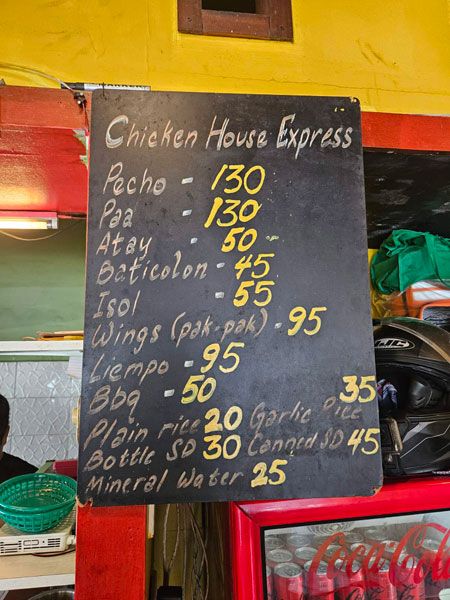 Chicken House Express
Pecho - 130
Paa - 130
Atay - 50
Baticolon - 45
Isol - 55
Wings (pak-pak) - 95
Liempo - 95
Bbq - 50
Plain rice 20 Garlic Rice 35
Bottle SD 30 Canned SD 45
Mineral Water 25
HJC
Coca-Cola